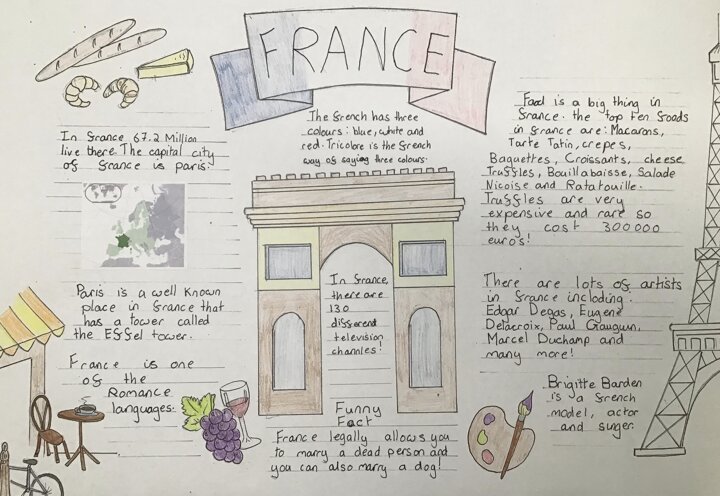 FRANCE
The french has three
colours: blue, white and
red. Tricolore is the french
way of saying three colours.
In france 67.2 Million
live there. The capital city
of france is paris.
Paris is a well known
place in france that
has a tower called
the Effel tower.
France is one
of the
Romance
languages.
In france,
there are
130
different
television
channles!
Funny
Fact
France legally allows you
to marry a dead person and
you can also marry a dog!
Food is a big thing in
france. the top ten foods
in france are: Macarons,
Tarte Tatin, crepes,
Baguettes, Croissants, cheese
Truffles, Bouillabaisse, Salade
Nicoise and Ratatouille.
Truffles are very
expensive and rare so
they cost 300000
euro's!
There are lots of artists
in france including.
Edgar Degas, Eugene
Delacroix, Paul Gauguin,
Marcel Duchamp and
many more!
Brigitte Barden
is a french
model, actor
and singer.